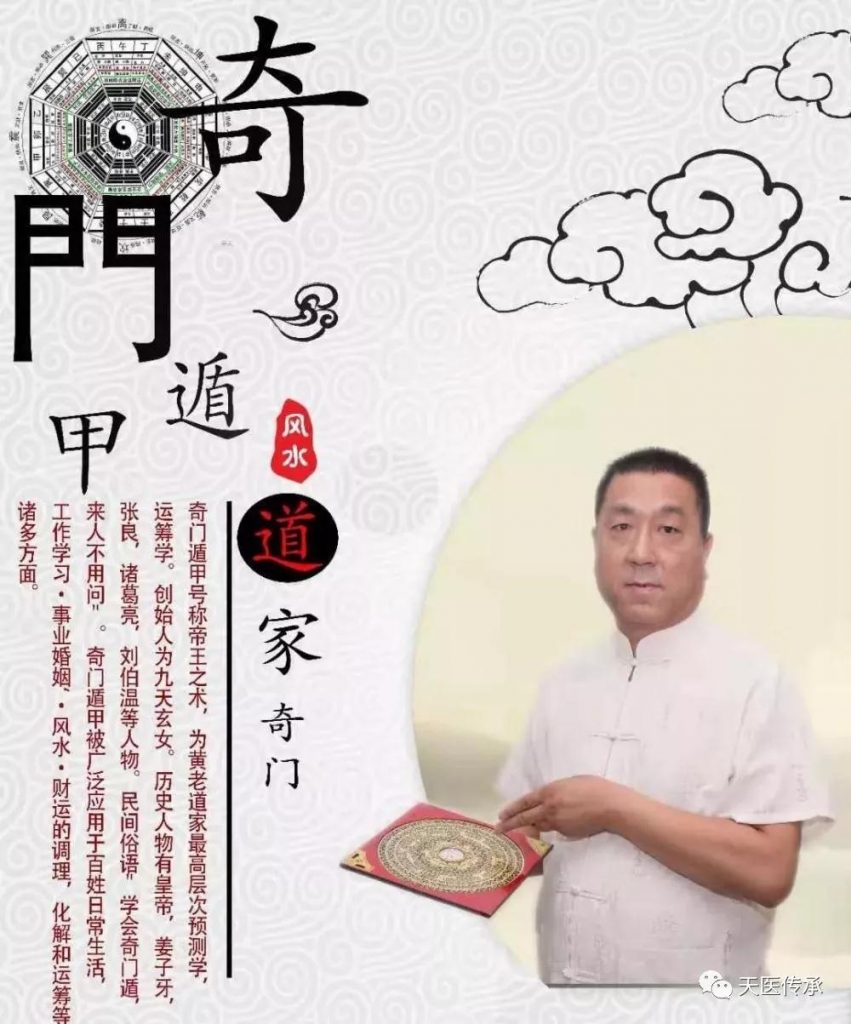 奇
門
遁
甲
风水
道家奇门
奇门遁甲号称帝王之术，为黄老道家最高层次预测学，
运筹学。创始人为九天玄女。历史人物有皇帝，姜子牙，
张良，诸葛亮，刘伯温等人物。民间俗语"学会奇门遁，
来人不用问"。奇门遁甲被广泛应用于百姓日常生活，
工作学习·事业婚姻、·风水·财运的调理，化解和运筹等
诸多方面。
天医传承